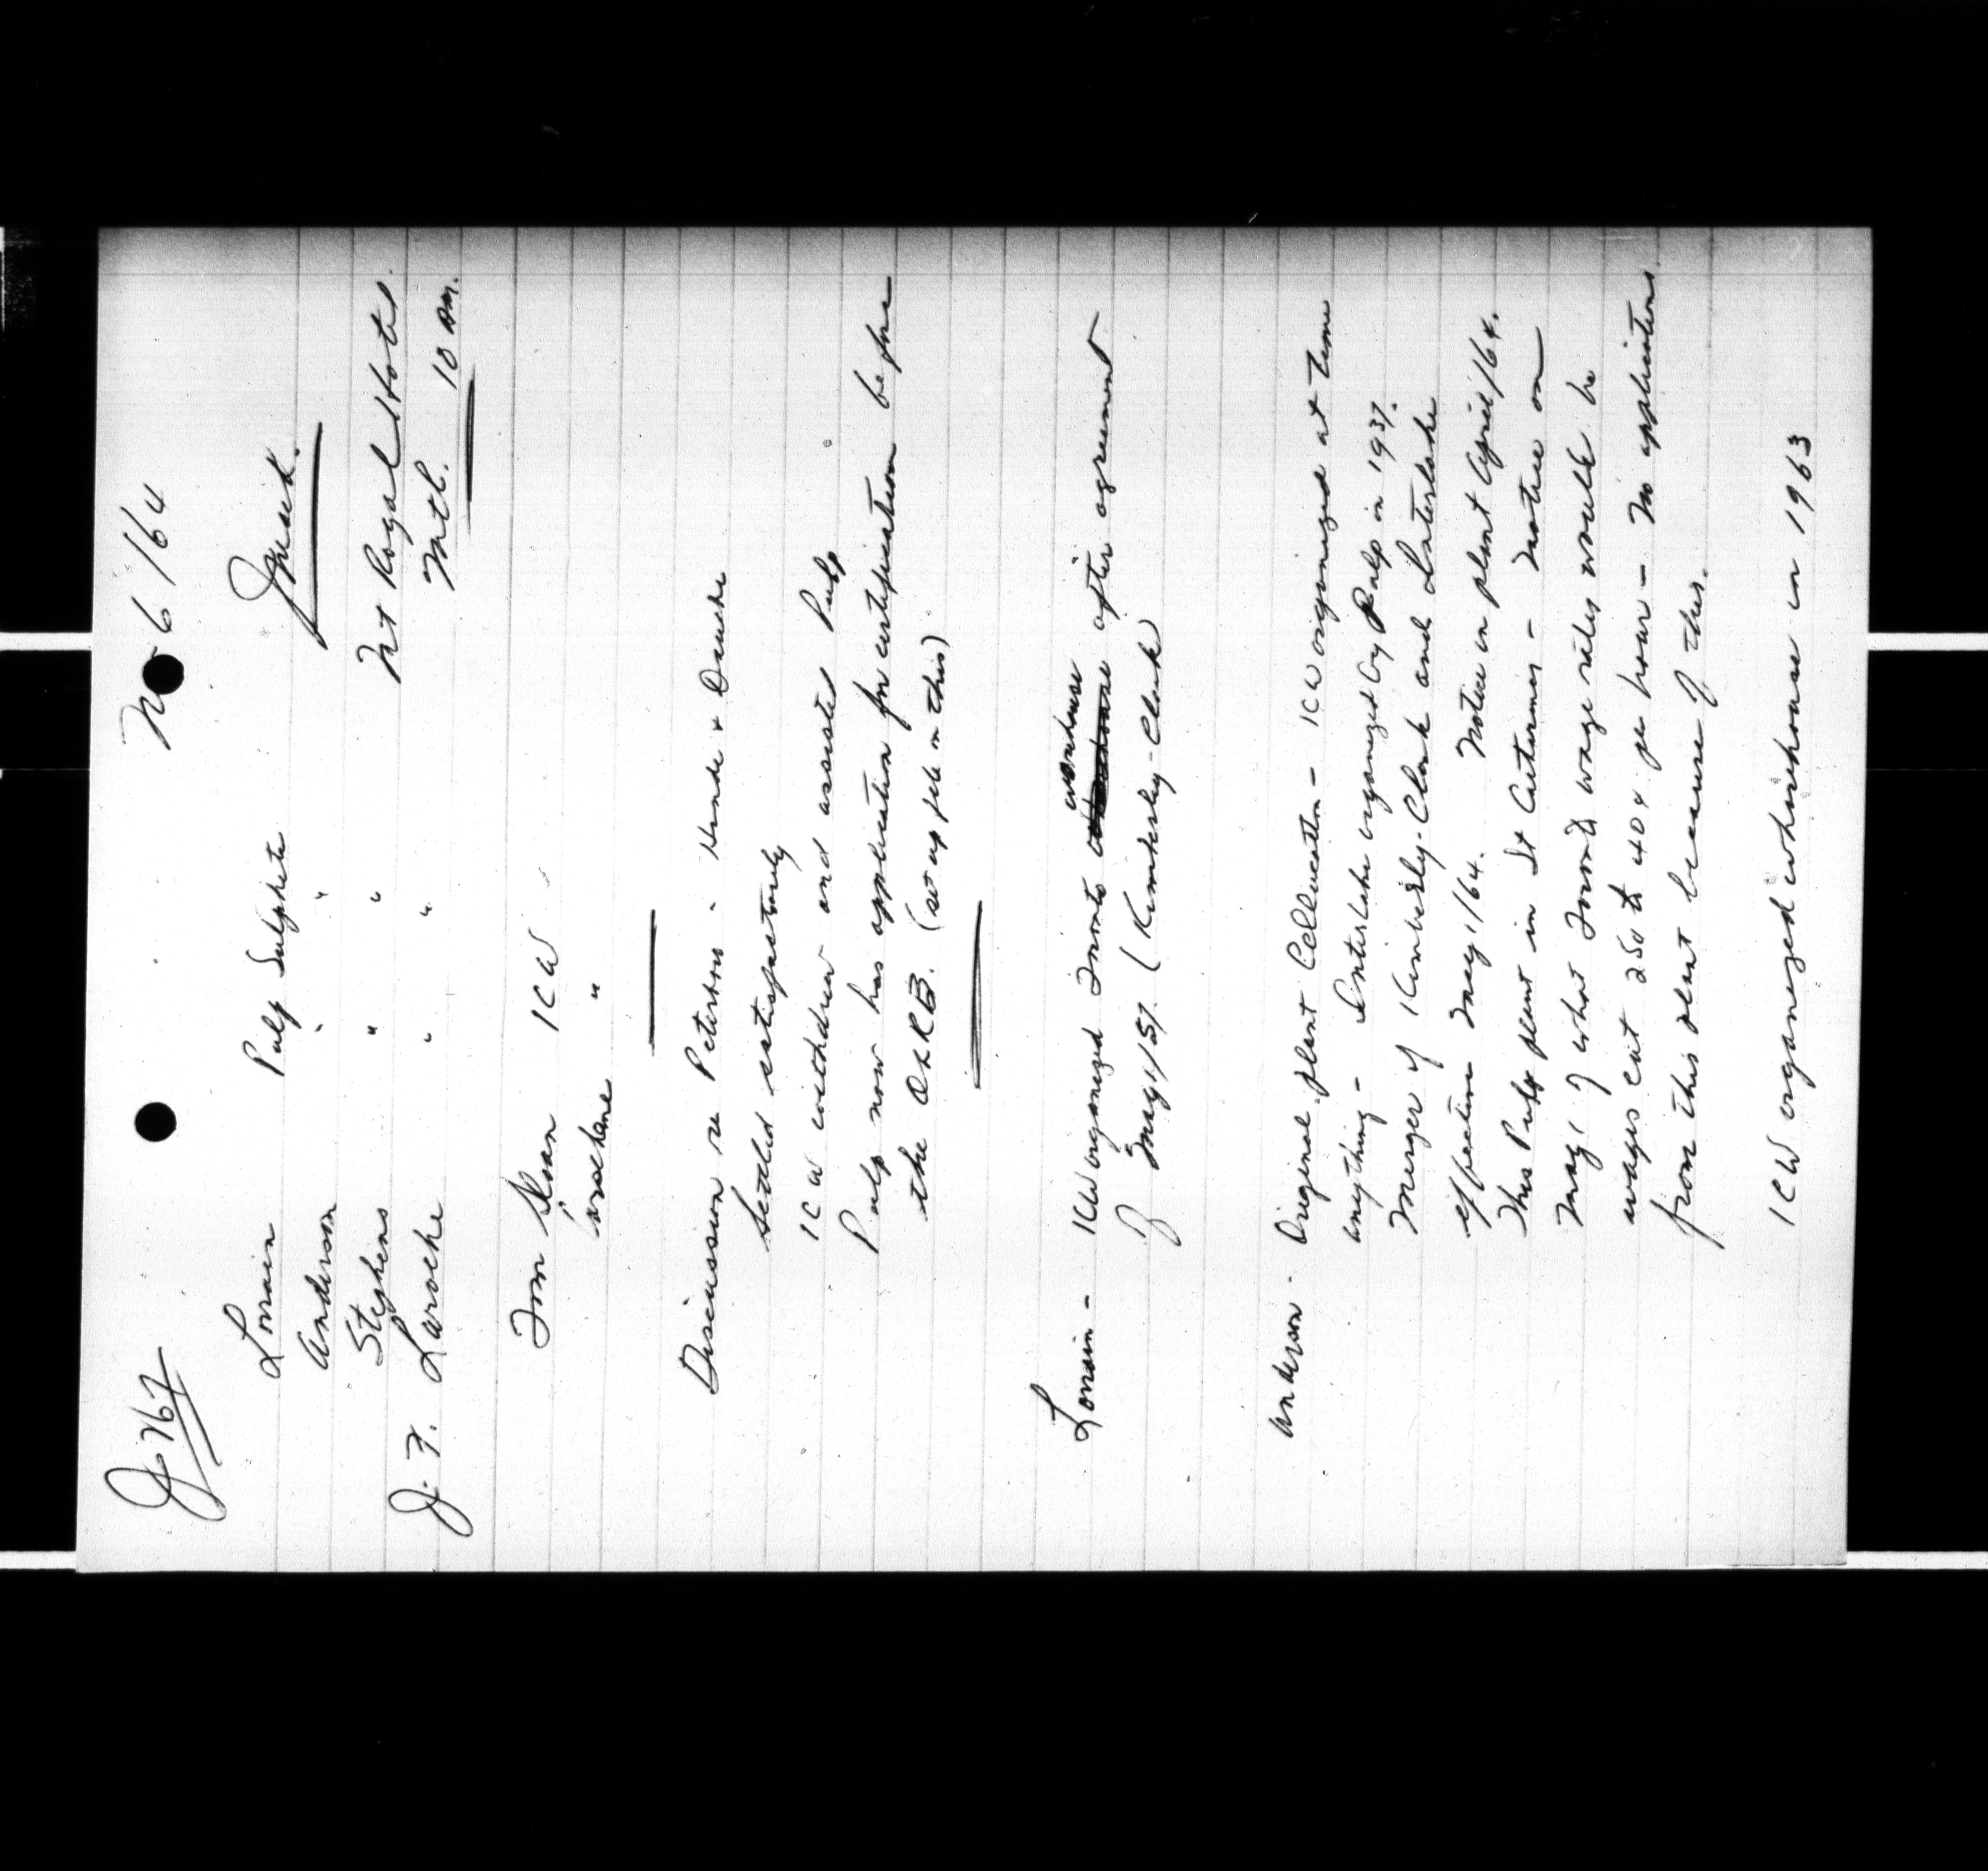 J 767
6/64
Lorain Pulp Sulphite
Anderson " "
Stephens " "
J. F. Laroche " "
Mt Royal Hotel
Mtl. 10 am.
Tom Sloan ICW
"
Discussion re Peterboro - Hinde & Dauche
Settled satisfactorily
ICW withdrew and assisted Pulp
Pulp now has application for certification before
the OLRB. (set up file on this)
Lorrain - ICW organized Toronto warehouse after agreement
of May 1/57. (Kimberly-Clark)
Anderson - Original plant Cellucotton - ICW organized at time
anything - Interlake organized by Pulp in 1937.
Merger of Kimberly-Clark and Interlake
effective May 1/64. Notice in plant April/64.
This Pulp plant in St Catherines - Notice on
May 1 of what Toronto wage rates would be
wages cut 25¢ to 40¢ per hour - No applications
from this plant because of this.
ICW organized warehouse in 1963